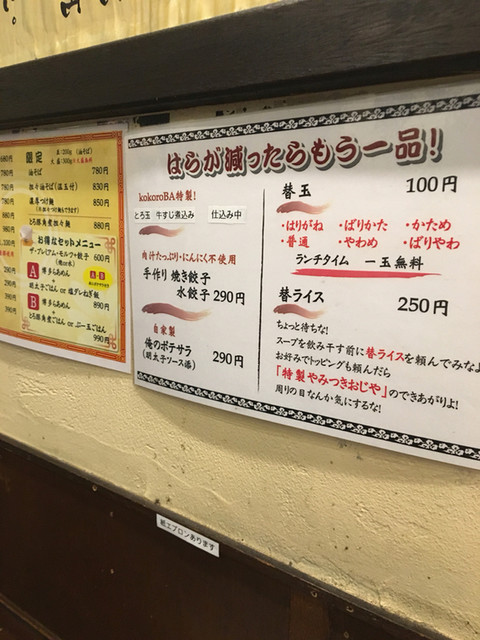 限定
並:200g(油そば)
油そば 780円
担々油そば(温玉付) 830円
濃厚つけ麺 850円
とろ豚角煮担々麺 980円
お得なセットメニュー
ザ・プレミアム・モルツ+餃子
(焼or水) 600円
A 博多らあめん
+
明太子ごはん or 塩ダレねぎ飯
B 博多らあめん 890円
+
とろ豚角煮ごはん or ぶー玉ごはん
990円
はらが減ったらもう一品!
kokoroBA特製!
とろ玉 牛すじ煮込み 仕込み中
肉汁たっぷり・にんにく不使用
手作り 焼き餃子
水餃子 290円
自家製
俺のポテサラ
(明太子ソース添) 290円
替玉 100円
・はりがね ・ばりかた ・かため
・普通 ・やわめ ・ばりやわ
ランチタイム 一玉無料
替ライス 250円
ちょっと待ちな!
スープを飲み干す前に替ライスを頼んでみなよ
お好みでトッピングも頼んだら
「特製やみつきおじや」のできあがりよ!
周りの目なんか気にするな!
紙エプロンあります